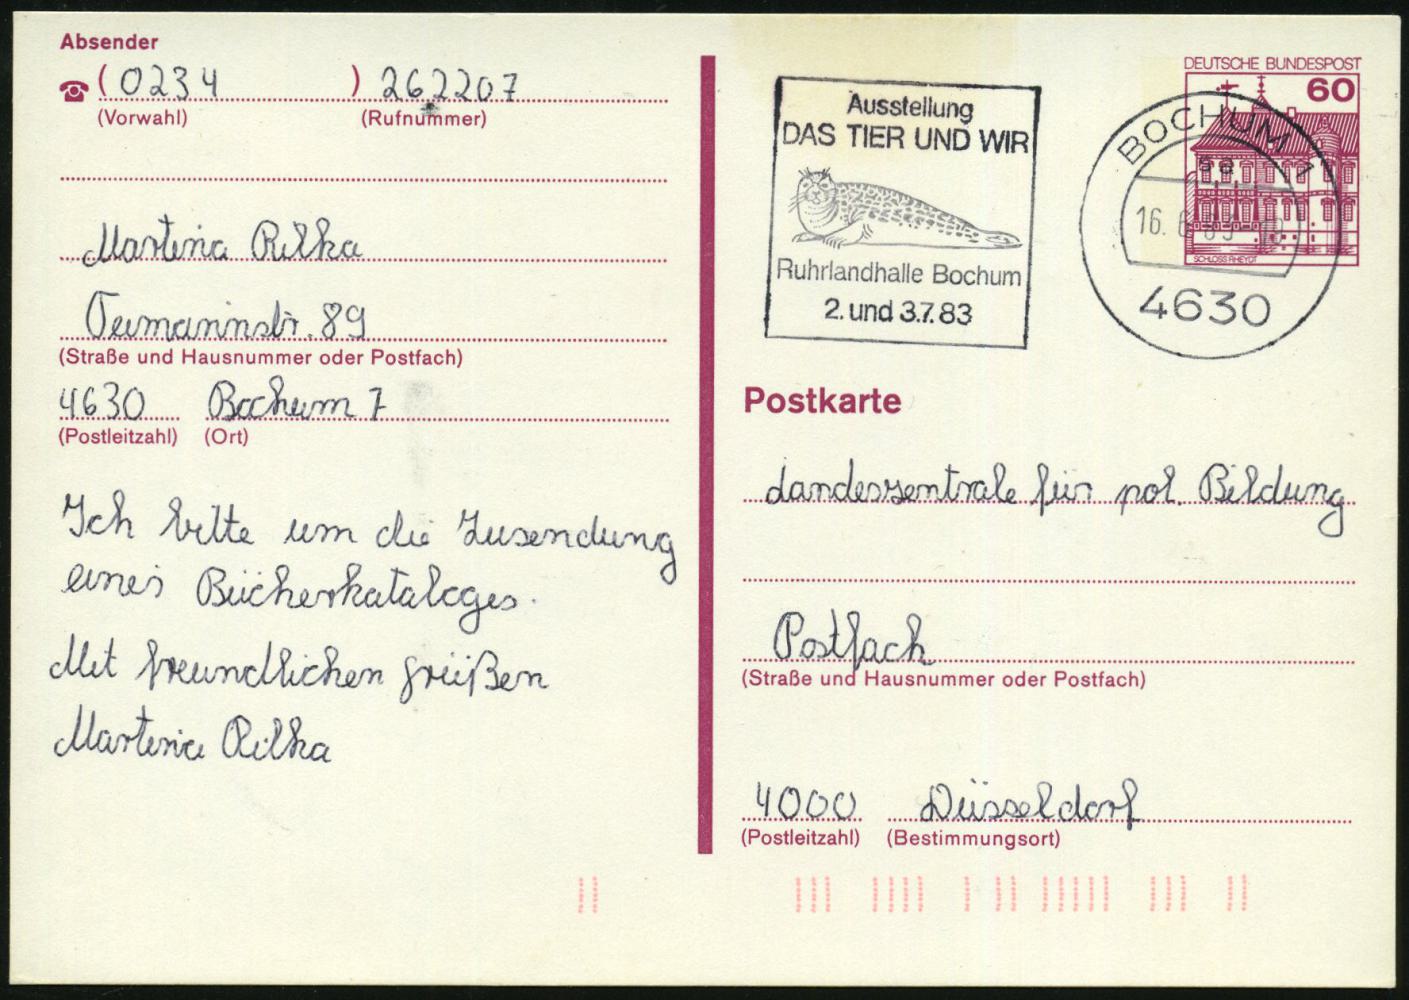 Absender
☎ (0234) 262207
(Vorwahl) (Rufnummer)
Martina Rilka
89
(Straße und Hausnummer oder Postfach)
4630 Bochum 7
(Postleitzahl) (Ort)
Ich bitte um die Zusendung
eines Bücherkataloges.
Mit freundlichen grüßen
Martina Rilka
Ausstellung
DAS TIER UND WIR
Ruhrlandhalle Bochum
2. und 3.7.83
DEUTSCHE BUNDESPOST
60
SCHLOSS RHEYDT
BOCHUM 1
16. 6. 83
4630
Postkarte
Landeszentrale für pol. Bildung
Postfach
(Straße und Hausnummer oder Postfach)
4000 Düsseldorf
(Postleitzahl) (Bestimmungsort)